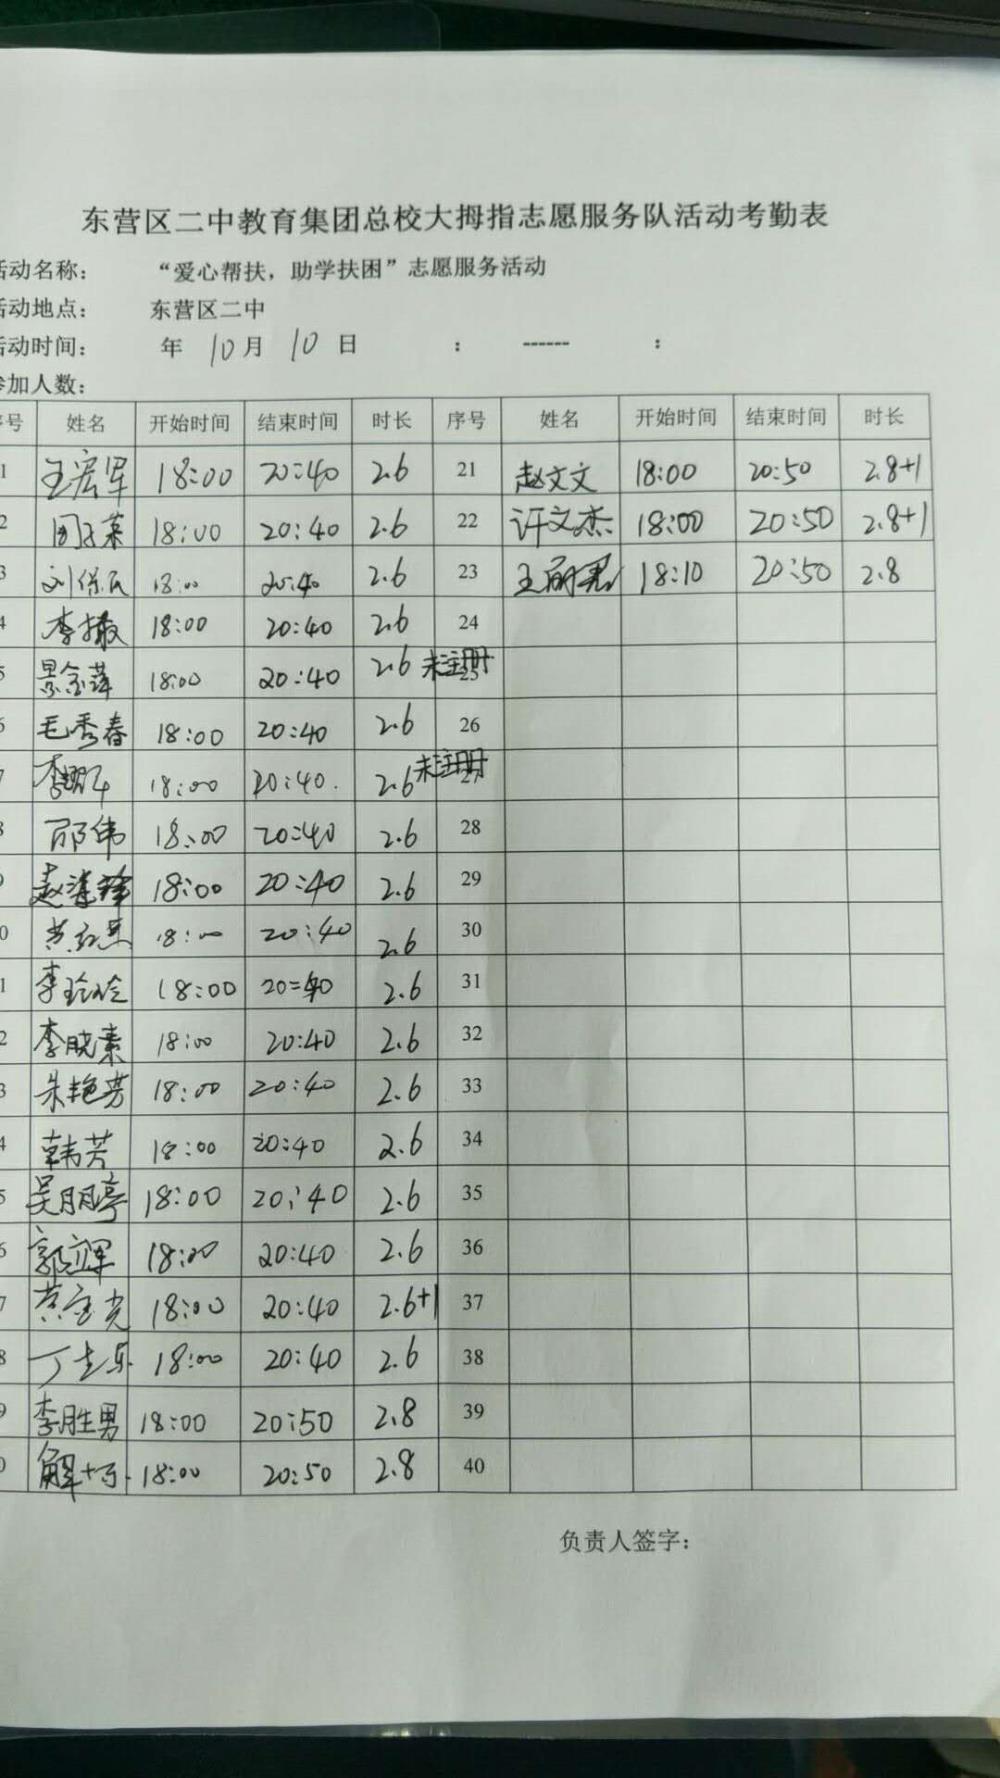 东营区二中教育集团总校大拇指志愿服务队活动考勤表
活动名称： “爱心帮扶，助学扶困”志愿服务活动
活动地点： 东营区二中
活动时间： 年 10月 10日 : ------ :
参加人数：
序号 姓名 开始时间 结束时间 时长 序号 姓名 开始时间 结束时间 时长
1 王宏军 18:00 20:40 2.6 21 赵文文 18:00 20:50 2.8+1
2 18:00 20:40 2.6 22 许文杰 18:00 20:50 2.8+1
3 刘保民 18:00 20:40 2.6 23 王丽君 18:10 20:50 2.8
4 李敏 18:00 20:40 2.6 24
5 景金萍 18:00 20:40 2.6 未注册 25
6 毛秀春 18:00 20:40 2.6 26
7 李 18:00 20:40. 2.6 未注册 27
8 邵伟 18:00 20:40 2.6 28
9 赵 18:00 20:40 2.6 29
0 黄 18:00 20:40 2.6 30
1 李玲玲 18:00 20=40 2.6 31
2 李晓素 18:00 20:40 2.6 32
3 朱艳芳 18:00 20:40 2.6 33
4 韩芳 18:00 20:40 2.6 34
5 吴丽亭 18:00 20:40 2.6 35
6 郭立军 18:00 20:40 2.6 36
7 黄金光 18:00 20:40 2.6+1 37
8 丁 18:00 20:40 2.6 38
9 李胜男 18:00 20:50 2.8 39
0 解 18:00 20:50 2.8 40
负责人签字：